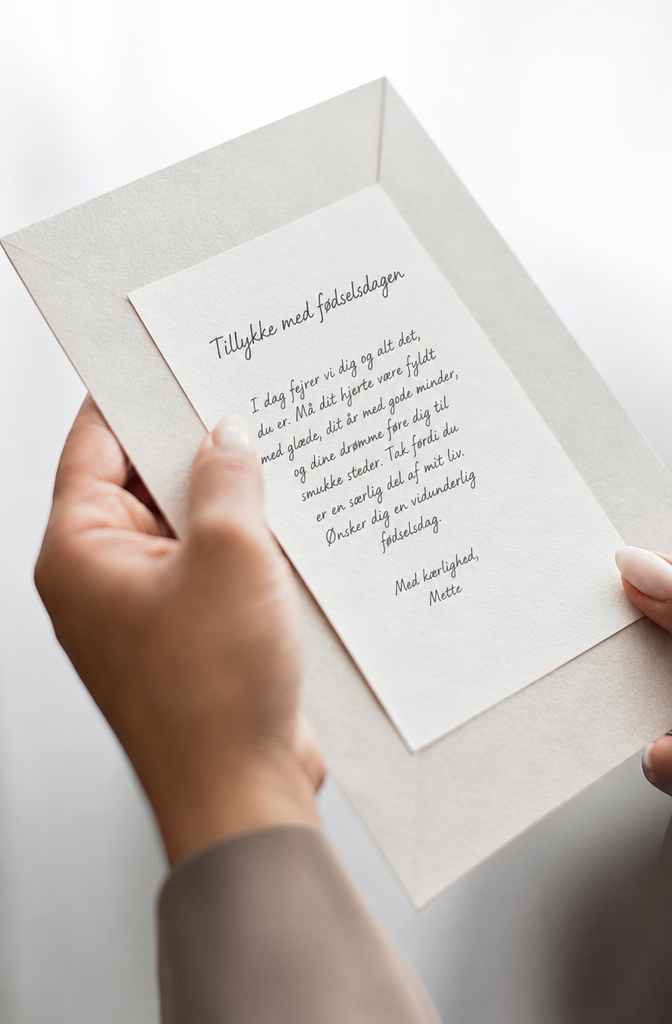 Tillykke med fødselsdagen
I dag fejrer vi dig og alt det,
du er. Må dit hjerte være fyldt
med glæde, dit år med gode minder,
og dine drømme føre dig til
smukke steder. Tak fordi du
er en særlig del af mit liv.
Ønsker dig en vidunderlig
fødselsdag.
Med kærlighed,
Mette